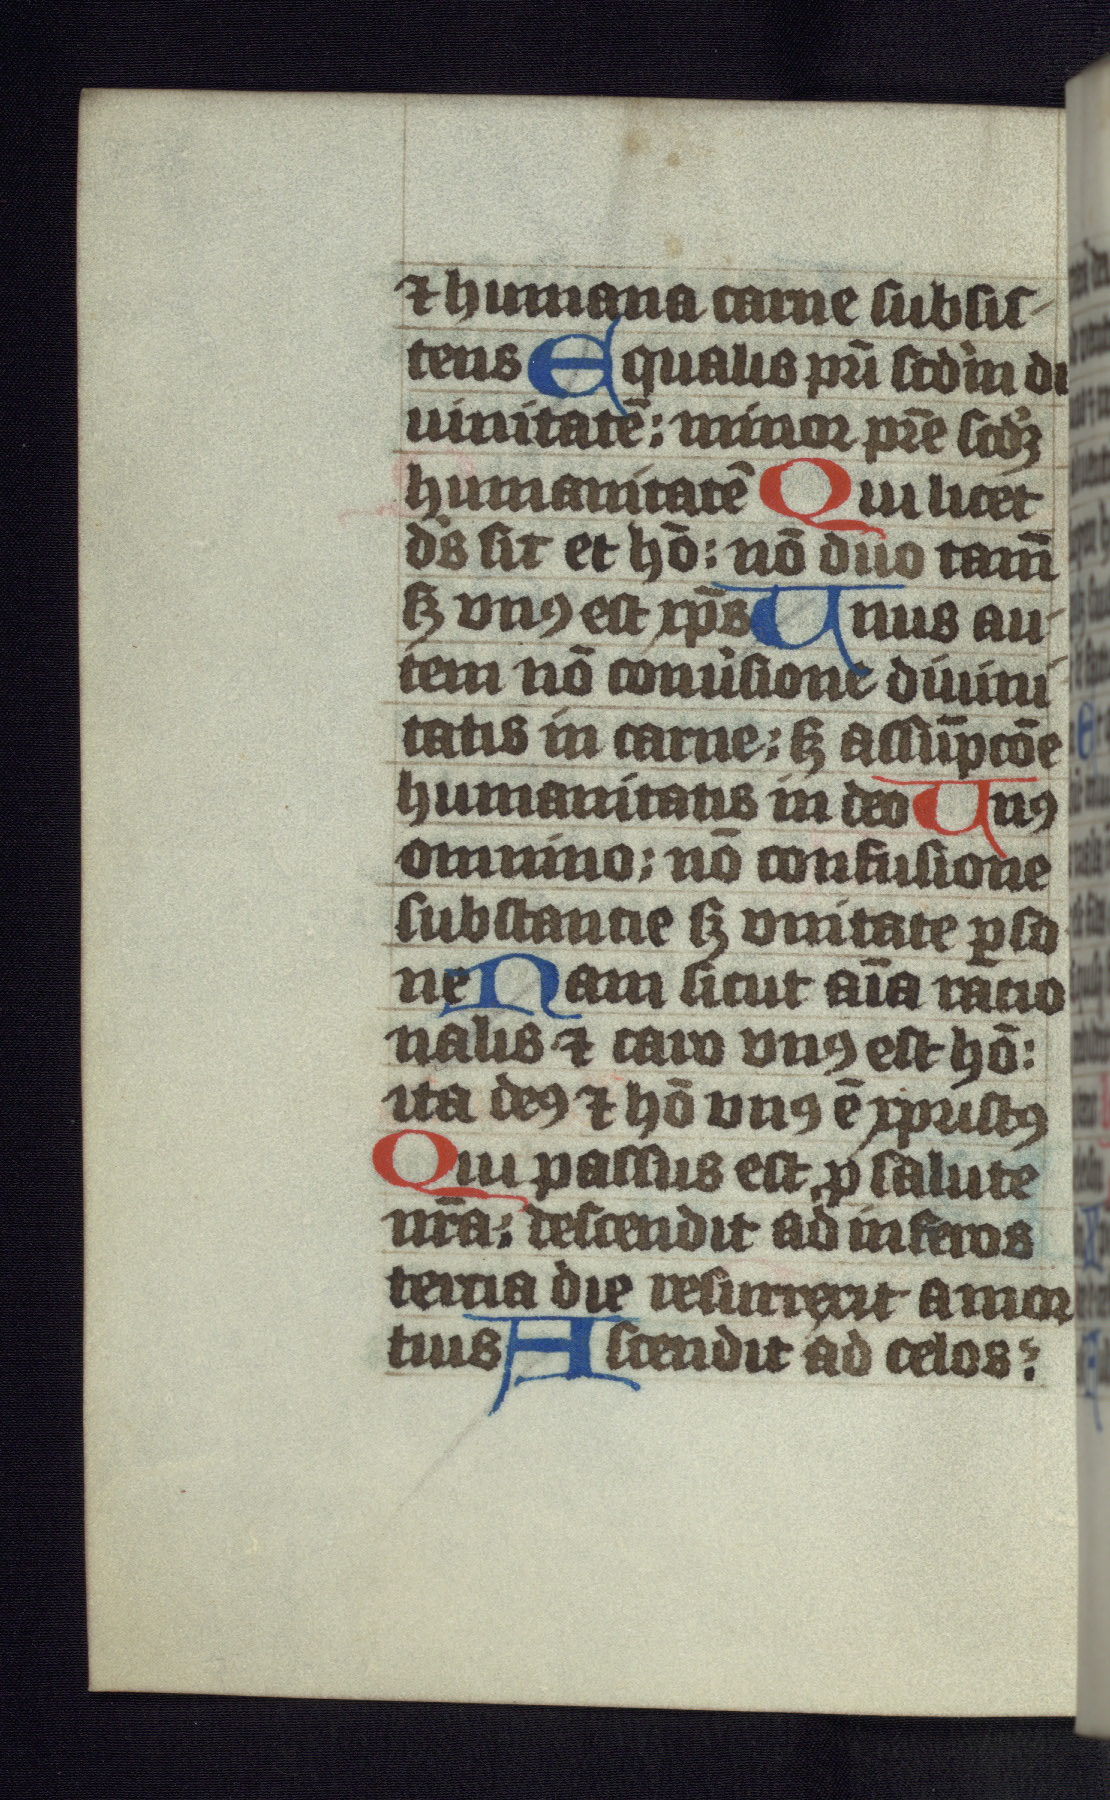 ⁊ humana carne subsis-
tens Equalis pr̄i scd'm di
uinitatē: minor pr̄e scdꝫ
humanitatē Qui licet
d's sit et hō: nō duo tam̄
sꝫ vnꝰ est xp̄s Unus au-
tem nō conu'sione diuini-
tatis in carne: sꝫ assūpcōe
humanitatis in deo Unꝰ
omnino: nō confusione
substancie sꝫ vnitate ꝑso
ne Nam sicut aīa racio
nalis ⁊ caro vnꝰ est hō:
ita deꝰ ⁊ hō vnꝰ ē xpristꝰ
Qui passus est ꝓ salute
nr̄a: descendit ad inferos
tercia die resurrexit a mor
tuis Ascendit ad celos: